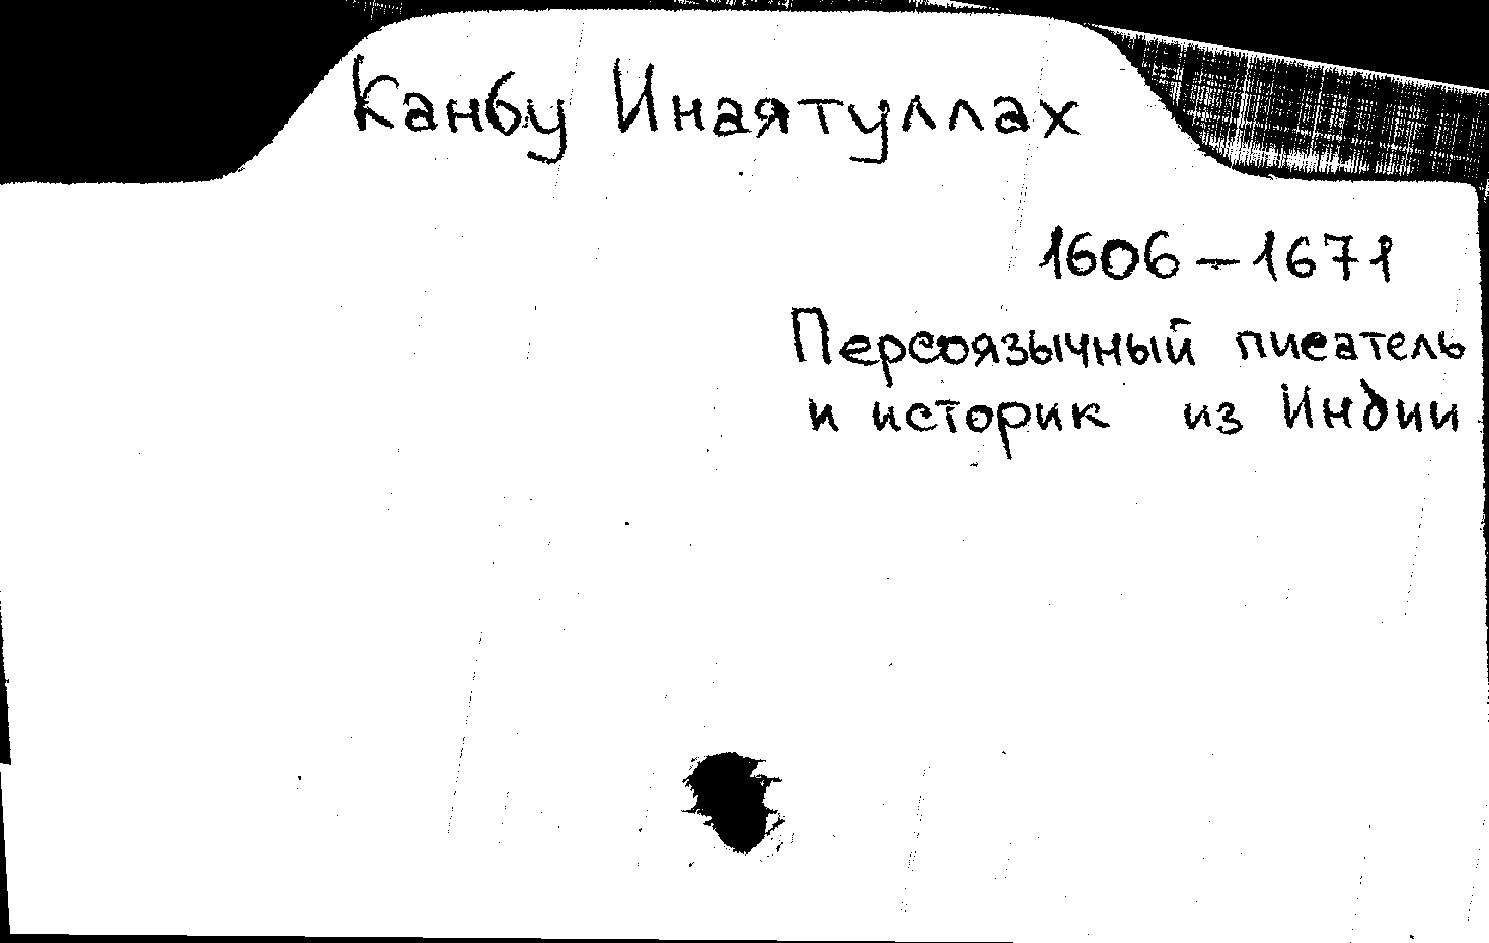 Канбу Инаятуллах
1606-1671
Персоязычный писатель
и историк из Индии